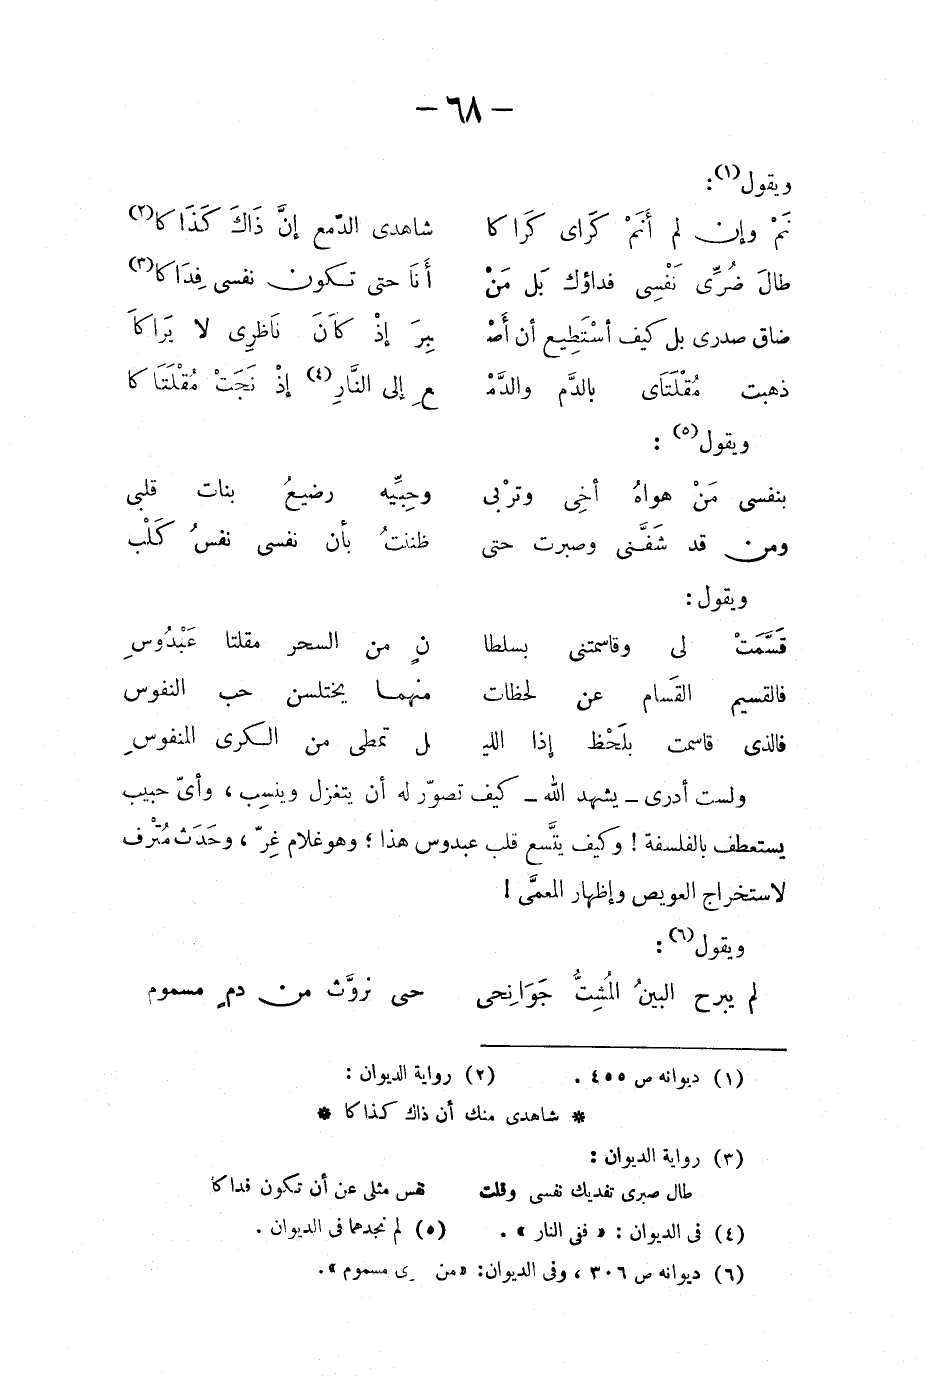 — ٦٨ —
ويقول(١):
نَمْ وإن لم أَنَمْ كَرَاى كَراكا شاهدى الدّمع إنَّ ذَاكَ كَذَاكا(٢)
طالَ ضُرِّى نَفْسِى فداؤك بَل مَنْ أَنَا حتى تكون نفسى فِدَاكا(٣)
ضاق صدرى بل كيف أسْتَطِيع أن أَصْـ ـبِرَ إذْ كَانَ نَاظِرِى لا يَرَاكَا
ذهبت مُقْلَتَاى بالدَّم والدَّمْـ ـعِ إلى النَّارِ(٤) إذْ نَجَتْ مُقْلَتَاكا
ويقول(٥) :
بنفسى مَنْ هواهُ أخِى وترْبى وحِبِّيه رضيعُ بنات قلبى
ومن قد شَفَّنى وصبرت حتى ظننتُ بأن نفسى نفسُ كَلْب
ويقول :
قَسَّمَتْ لى وقاسمتنى بسلطا نٍ من السحر مقلتا عَبْدُوسِ
فالقسيم القسَام عن لحظات منهما يختلسن حب النفوس
فالذى قاسمت بلَحْظ إذا الليـ ـل تمطى من الكرى المنفوسِ
ولست أدرى ــ يشهد الله ــ كيف تصوّر له أن يتغزل وينسِب ، وأىّ حبيب
يستعطف بالفلسفة ! وكيف يتَّسع قلب عبدوس هذا ؛ وهو غلام غِرّ ، وحَدَث مُتْرف
لاستخراج العويص وإظهار المعمَّى !
ويقول(٦) :
لم يبرح البينُ المُشِتُّ جَوَانِحى حتى تروَّت من دمٍ مسموم
(١) ديوانه ص ٤٥٥ . (٢) رواية الديوان :
* شاهدى منك أن ذاك كذاكا *
(٣) رواية الديوان :
طال صبرى تفديك نفسى وقلت نفس مثلى عن أن تكون فداكا
(٤) فى الديوان : « فى النار » . (٥) لم نجدهما فى الديوان .
(٦) ديوانه ص ٣٠٦ ، وفى الديوان: «من مسموم» .